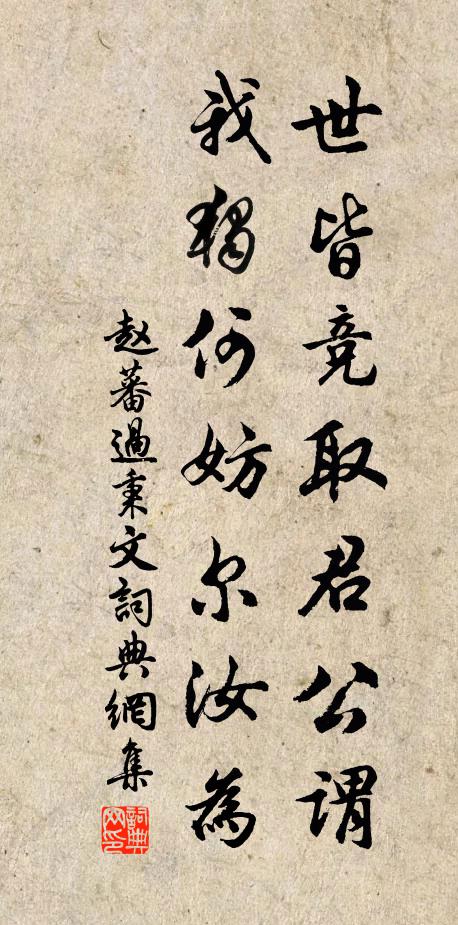 世皆竞取君公谓
我獨何妨尔汝為
赵蕃過秉文詞典網集
詞典
网印